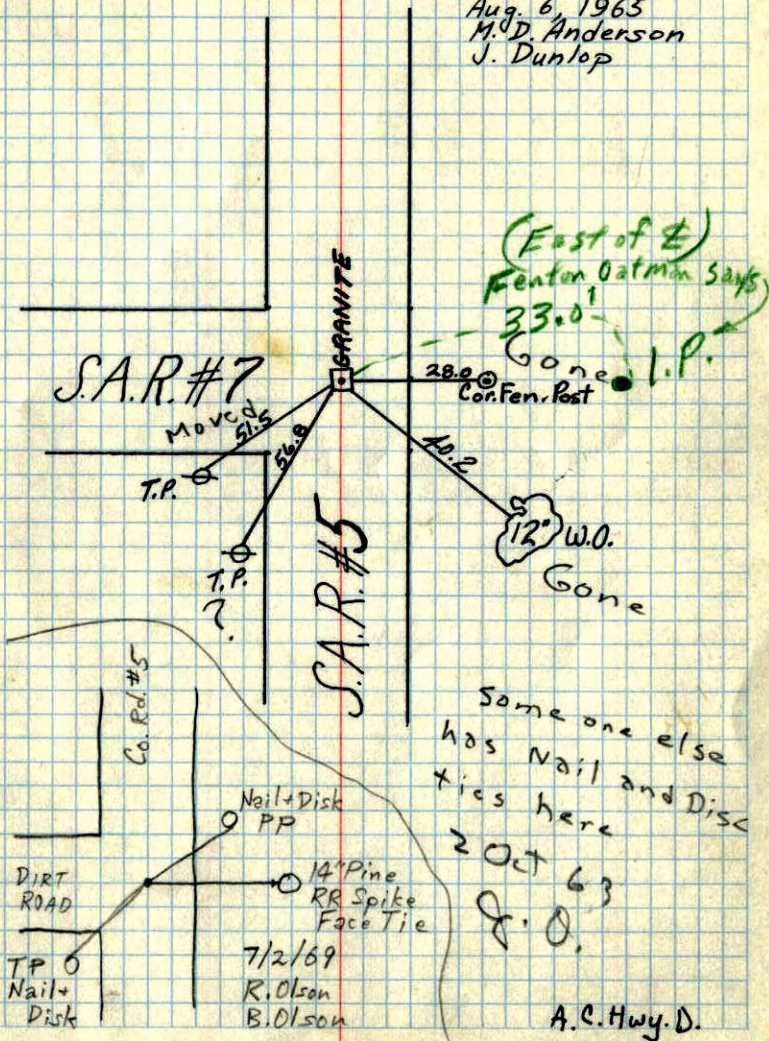 Aug. 6, 1965
M. D. Anderson
J. Dunlop
(East of ⅊)
Fenton Oatman says
33.0'
I.P.
GRANITE
Gone
28.0
Cor. Fen. Post
S.A.R. #7
Moved
51.5
56.8
40.2
T.P.
T.P.
?
12" W.O.
Gone
S.A.R. #5
Co. Rd. #5
Some one else
has Nail and Disc
ties here
2 Oct 63
J. O.
Nail + Disk
PP
14" Pine
RR Spike
Face Tie
DIRT
ROAD
TP
Nail +
Disk
7/2/69
R. Olson
B. Olson
A.C. Hwy. D.